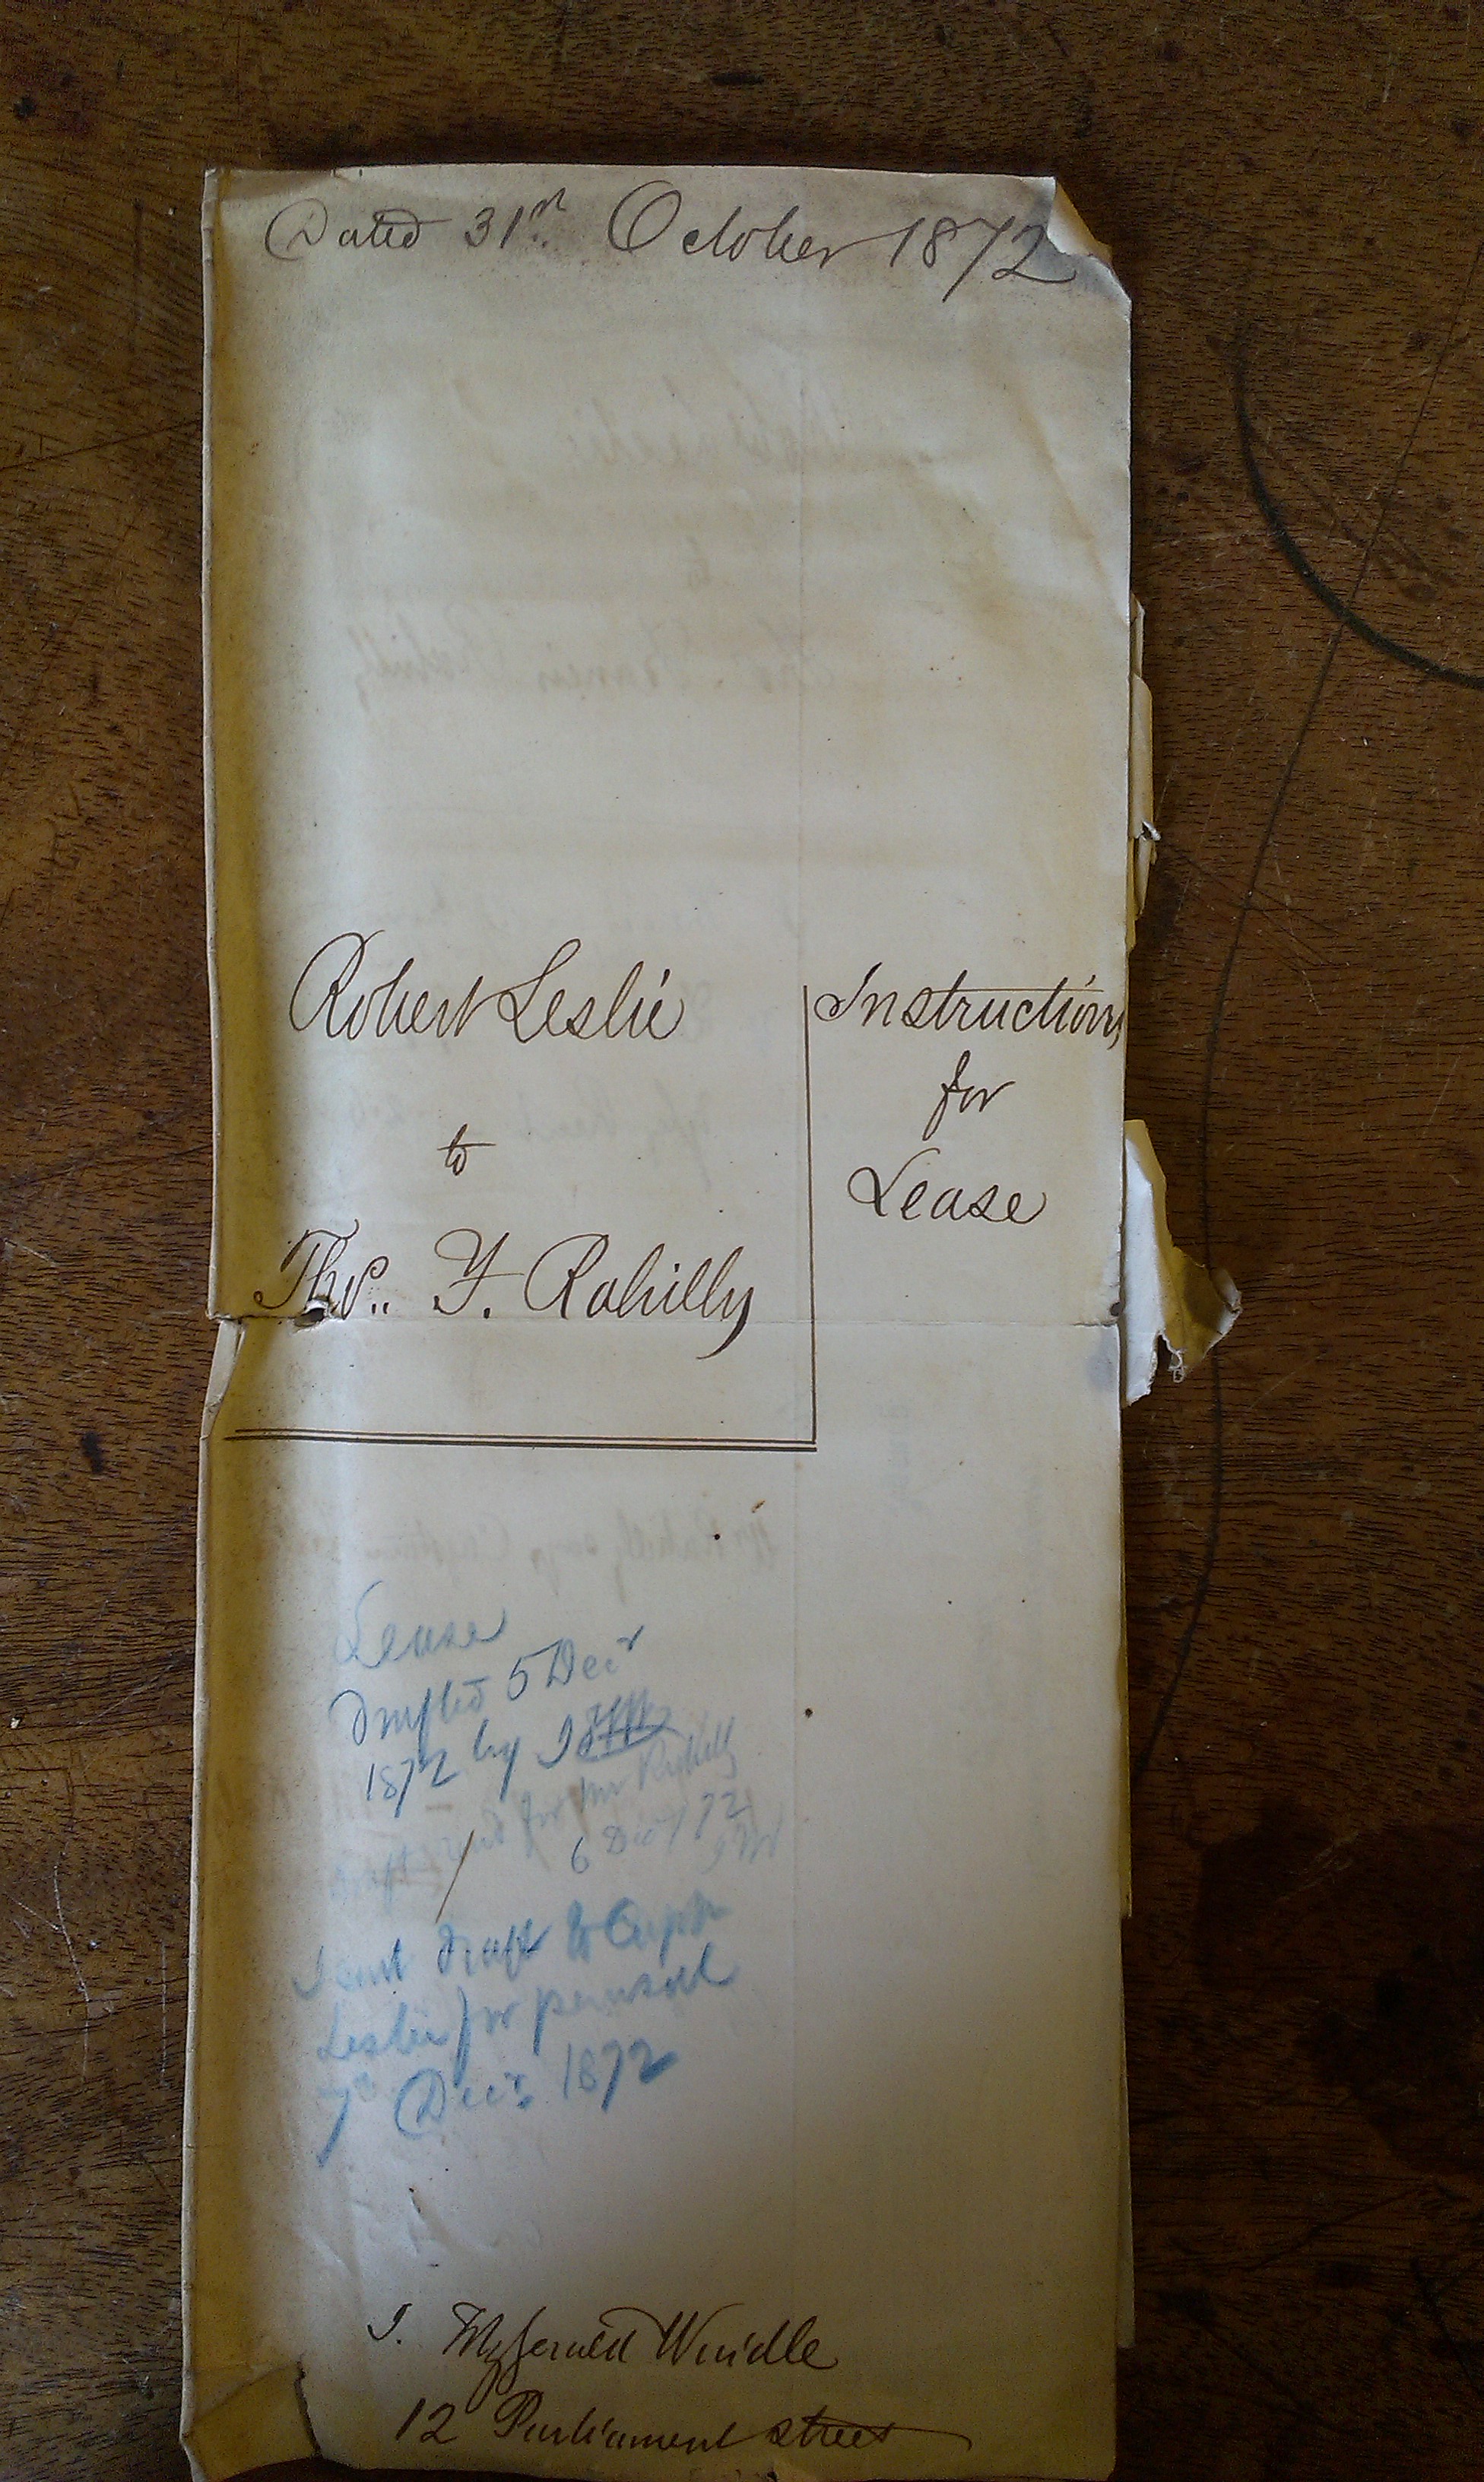 Dated 31st October 1872
Robert Leslie
to
Thos. F. Rahilly
Instructions
for
Lease
Lease
Drafted 5 Decr
1872 by
for Mr Rahilly
6 Decr 72
Sent draft to Captn
Leslie for perusal
7th Decr. 1872
J. Fitzgerald Windle
12 Parliament street